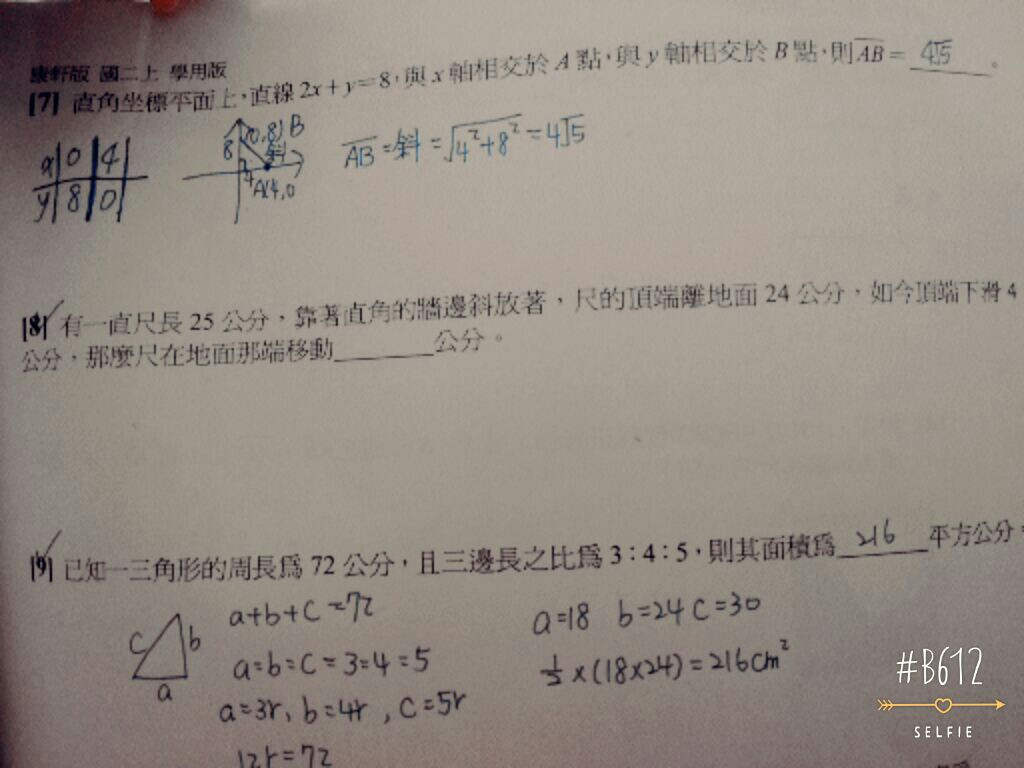 康軒版 國二上 學用版
[7] 直角坐標平面上，直線 2x+y=8，與 x 軸相交於 A 點，與 y 軸相交於 B 點，則 AB = 4√5 。
x 0 4
y 8 0
8 (0,8) B
斜
4 A(4,0
AB = 斜 = √4²+8² = 4√5
[8] 有一直尺長 25 公分，靠著直角的牆邊斜放著，尺的頂端離地面 24 公分，如今頂端下滑 4
公分，那麼尺在地面那端移動______公分。
[9] 已知一三角形的周長為 72 公分，且三邊長之比為 3：4：5，則其面積為 216 平方公分，
c b
a
a+b+c=72
a=b=c=3=4=5
a=3r、b=4r , c=5r
12r=72
a=18 b=24 c=30
½×(18×24)=216cm²
#B612
SELFIE